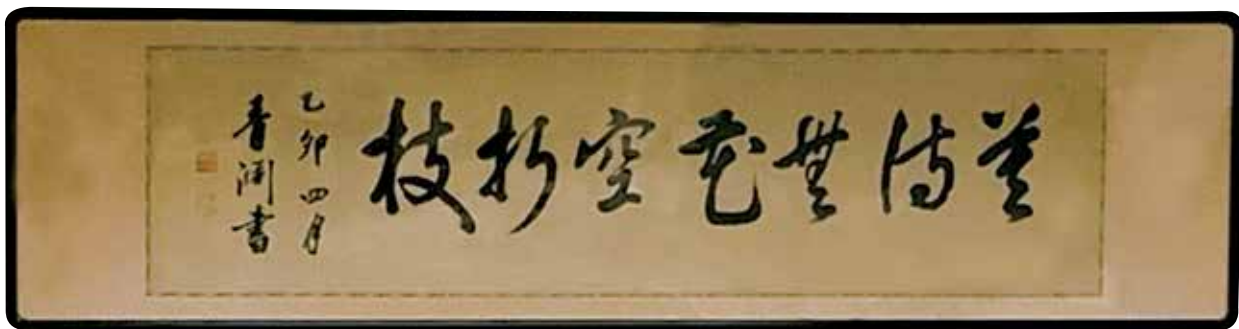 莫待無花空折枝
乙卯四月
香澗書